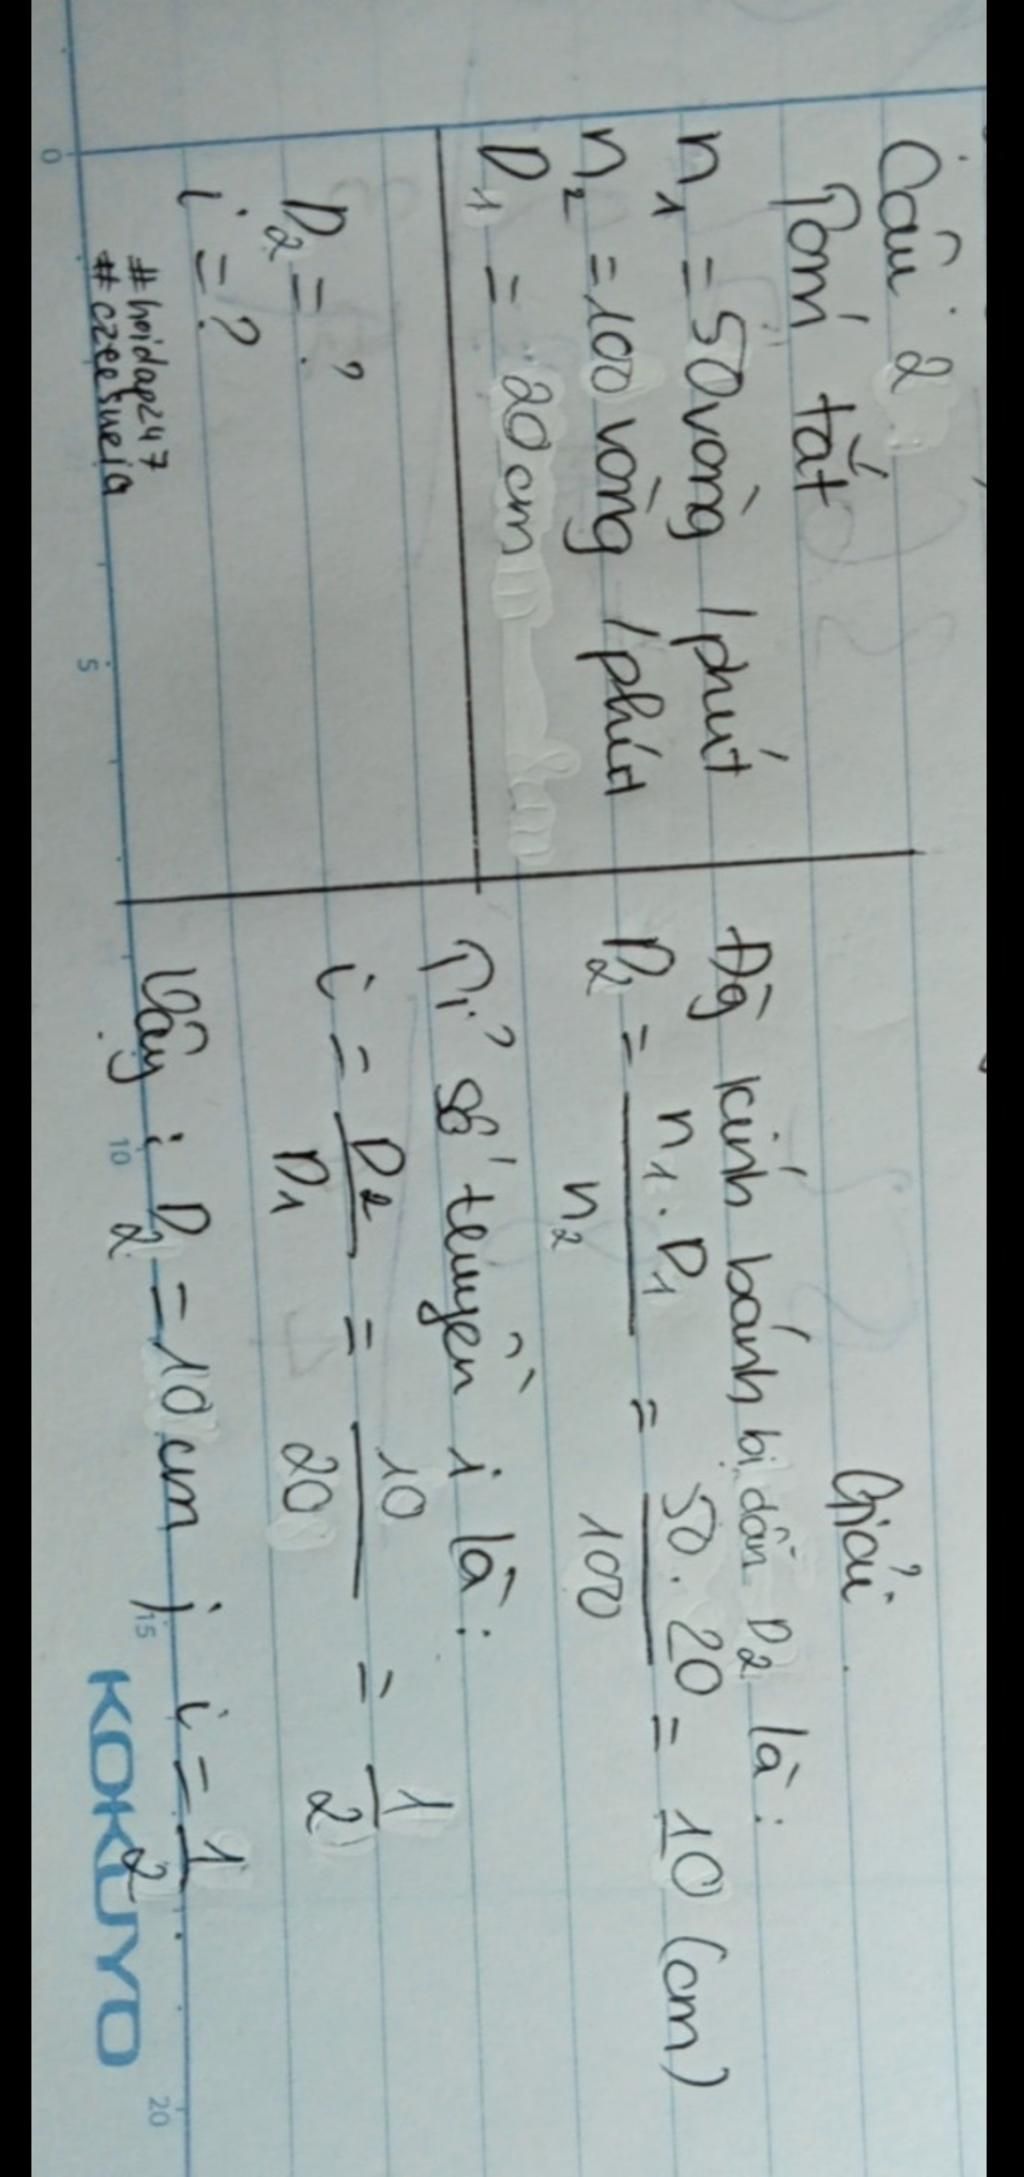 Câu 2
Tóm tắt
n₁ = 50 vòng / phút
n₂ = 100 vòng / phút
D₁ = 20 cm
D₂ = ?
i = ?
#hoidap247
Giải
Đg kính bánh bị dẫn D₂ là :
D₂ = n₁ . D₁ / n₂ = 50 . 20 / 100 = 10 (cm)
Tỉ số truyền i là :
i = D₂ / D₁ = 10 / 20 = 1 / 2
Vậy : D₂ = 10 cm ; i = 1 / 2 .
0 5 10 15 20
KOKUYO